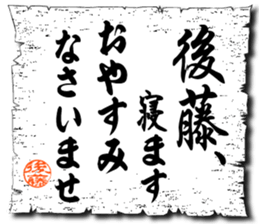 後藤、
寝ます
おやすみ
なさいませ
後藤